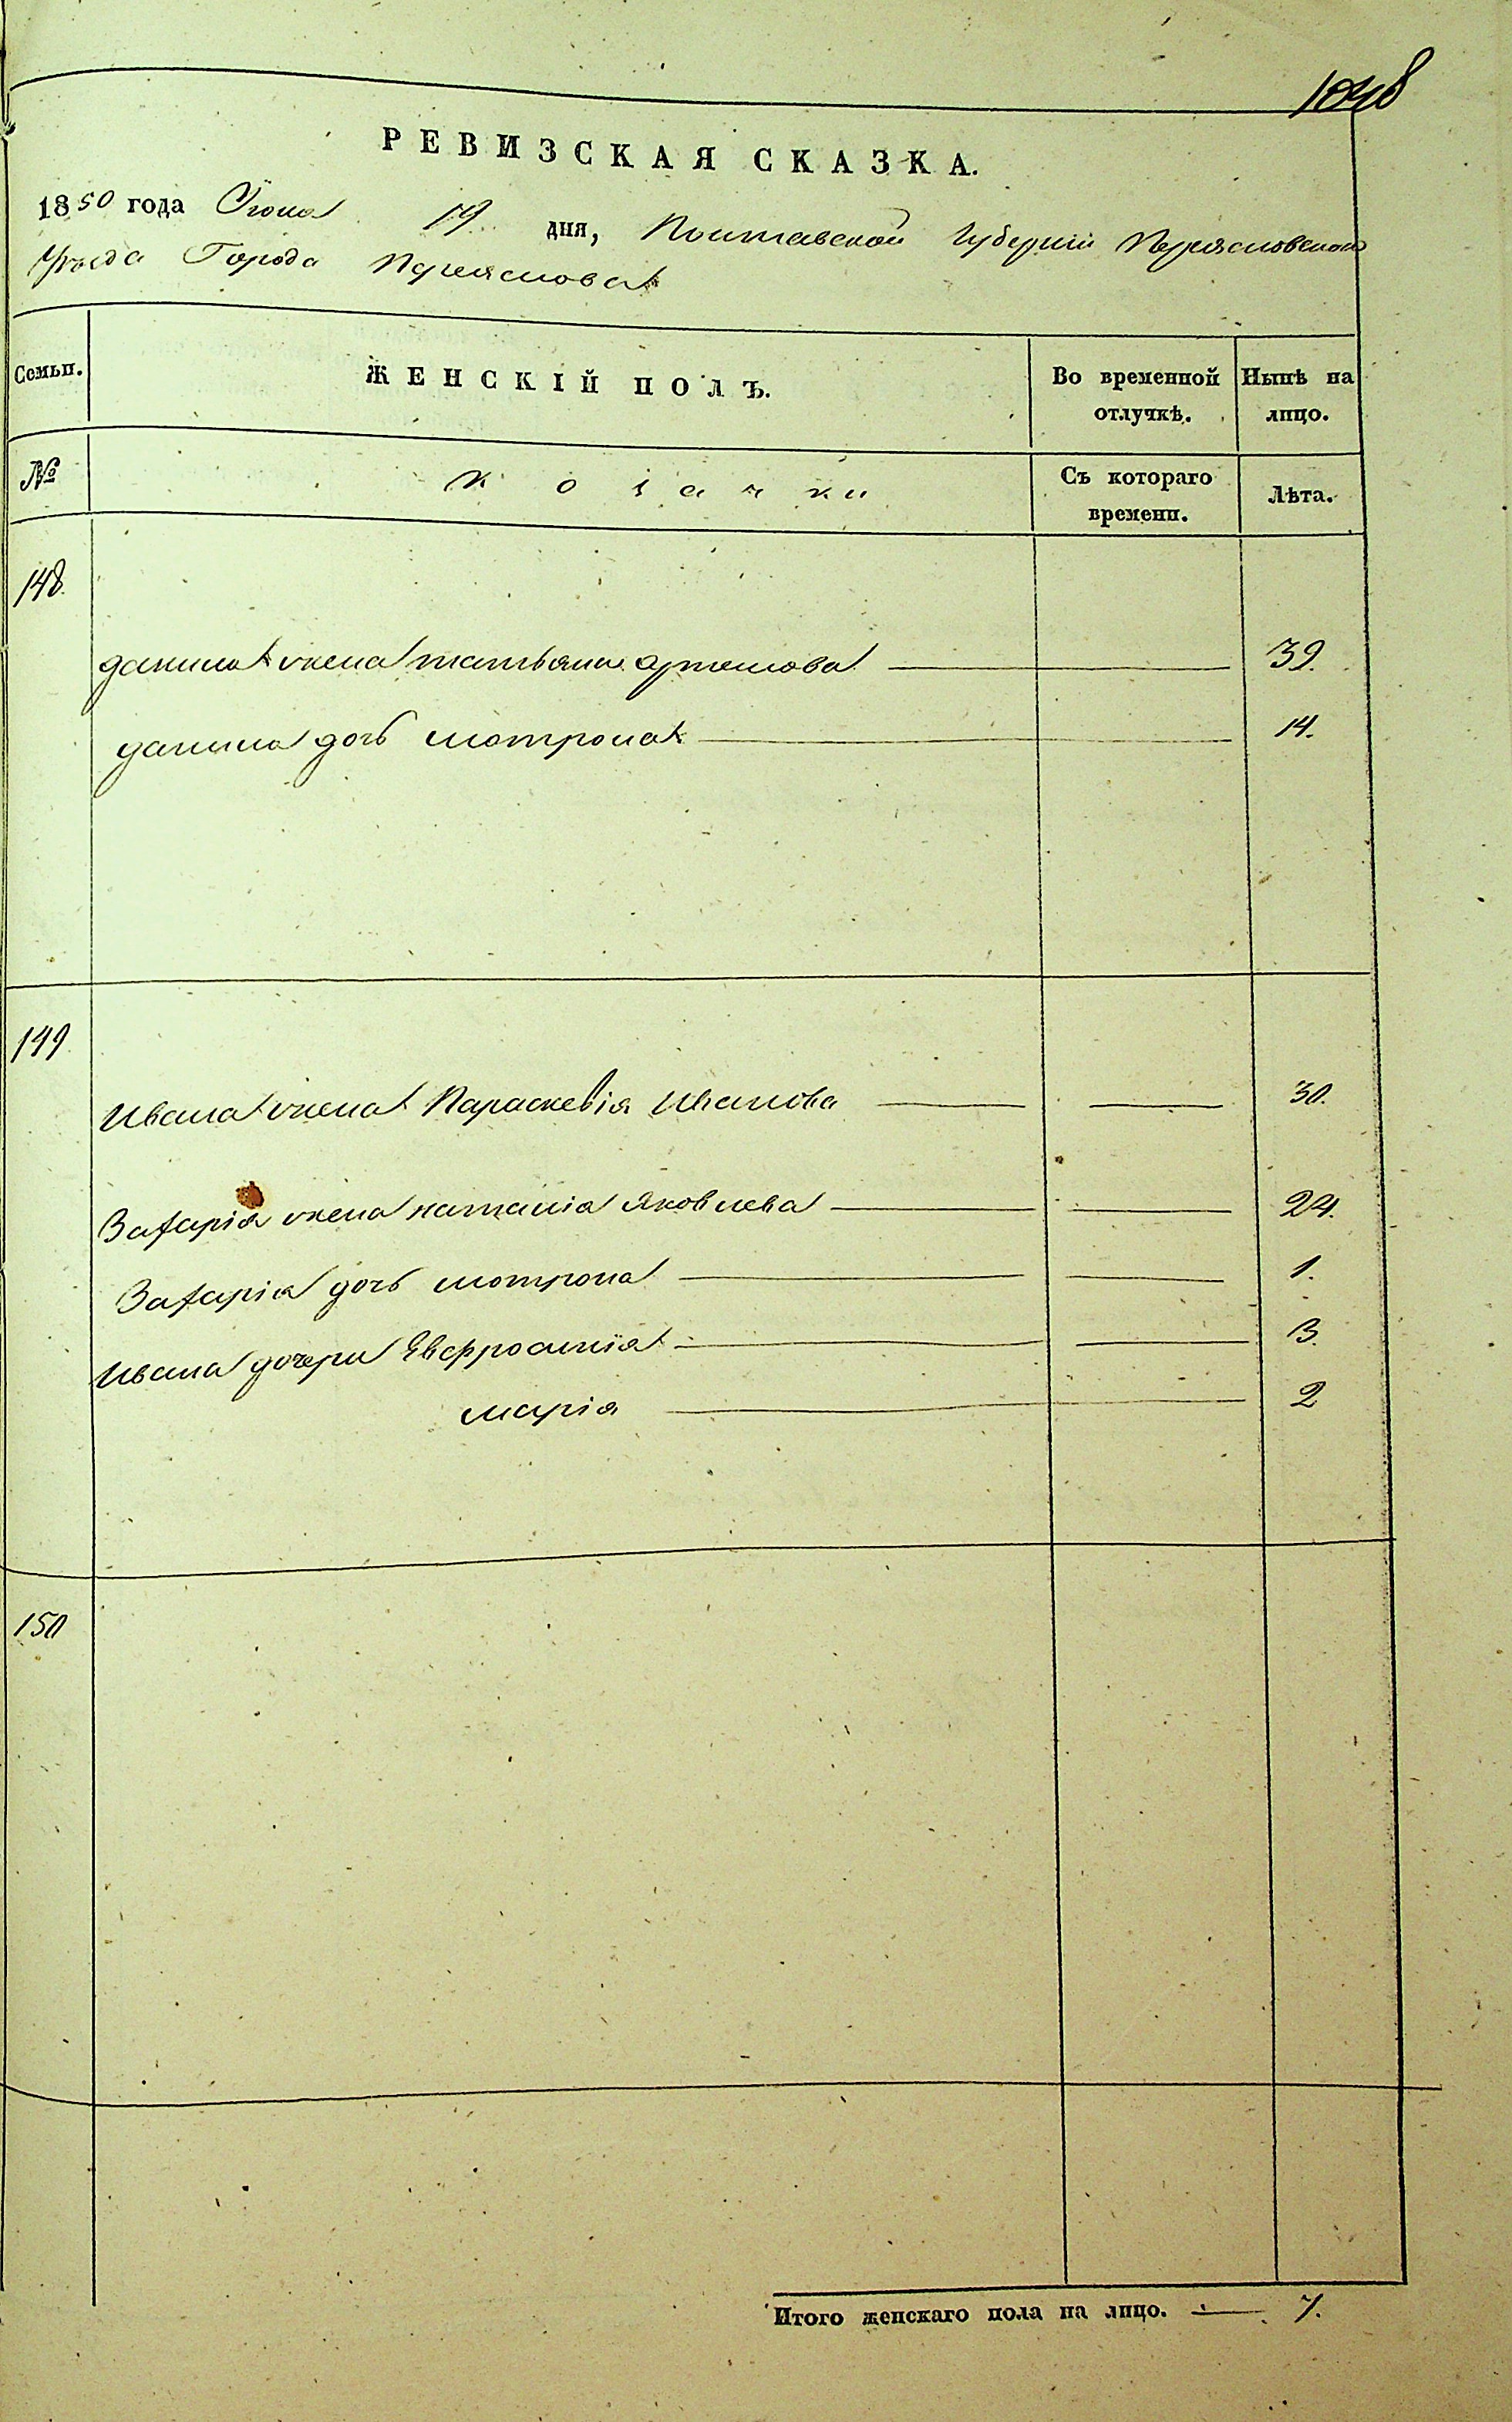 1048
РЕВИЗСКАЯ СКАЗКА.
1850 года Июня 19 дня, Полтавской Губерніи Переясловскаго
Уѣзда Города Переяслова
Семьи. ЖЕНСКІЙ ПОЛЪ. Во временной отлучкѣ. Нынѣ на лицо.
№ Козачки Съ котораго времени. Лѣта.
148.
Данила жена Татьяна Артемова 39.
Данила дочь Мотрона 14.
149
Ивана жена Параскевія Иванова 30.
Захарія жена Наталія Яковлева 24.
Захарія дочь Мотрона 1.
Ивана дочери Евфросинія 3.
Марія 2
150
Итого женскаго пола на лицо. 7.